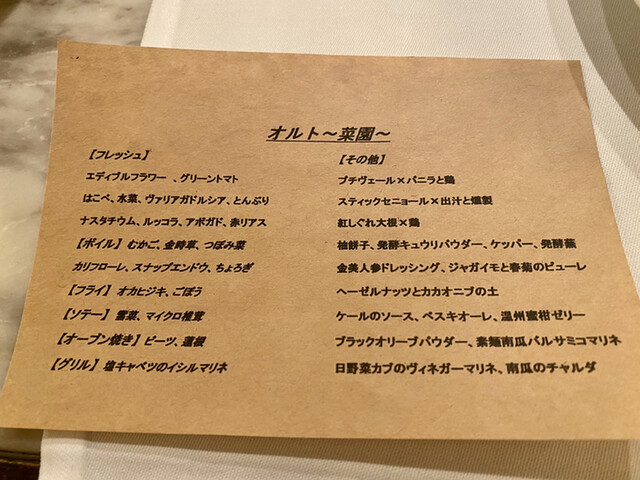 オルト~菜園~
【フレッシュ】
エディブルフラワー 、グリーントマト
はこべ、水菜、ヴァリアガドルシア、とんぶり
ナスタチウム、ルッコラ、アボガド、赤リアス
【ボイル】むかご、金時草、つぼみ菜
カリフローレ、スナップエンドウ、ちょろぎ
【フライ】オカヒジキ、ごぼう
【ソテー】雪菜、マイクロ椎茸
【オーブン焼き】ビーツ、蓮根
【グリル】塩キャベツのイシルマリネ
【その他】
プチヴェール×バニラと鶏
スティックセニョール×出汁と燻製
紅しぐれ大根×鶏
柚餅子、発酵キュウリパウダー、ケッパー、発酵蕪
金美人参ドレッシング、ジャガイモと春菊のピューレ
ヘーゼルナッツとカカオニブの土
ケールのソース、ペスキオーレ、温州蜜柑ゼリー
ブラックオリーブパウダー、素麺南瓜バルサミコマリネ
日野菜カブのヴィネガーマリネ、南瓜のチャルダ